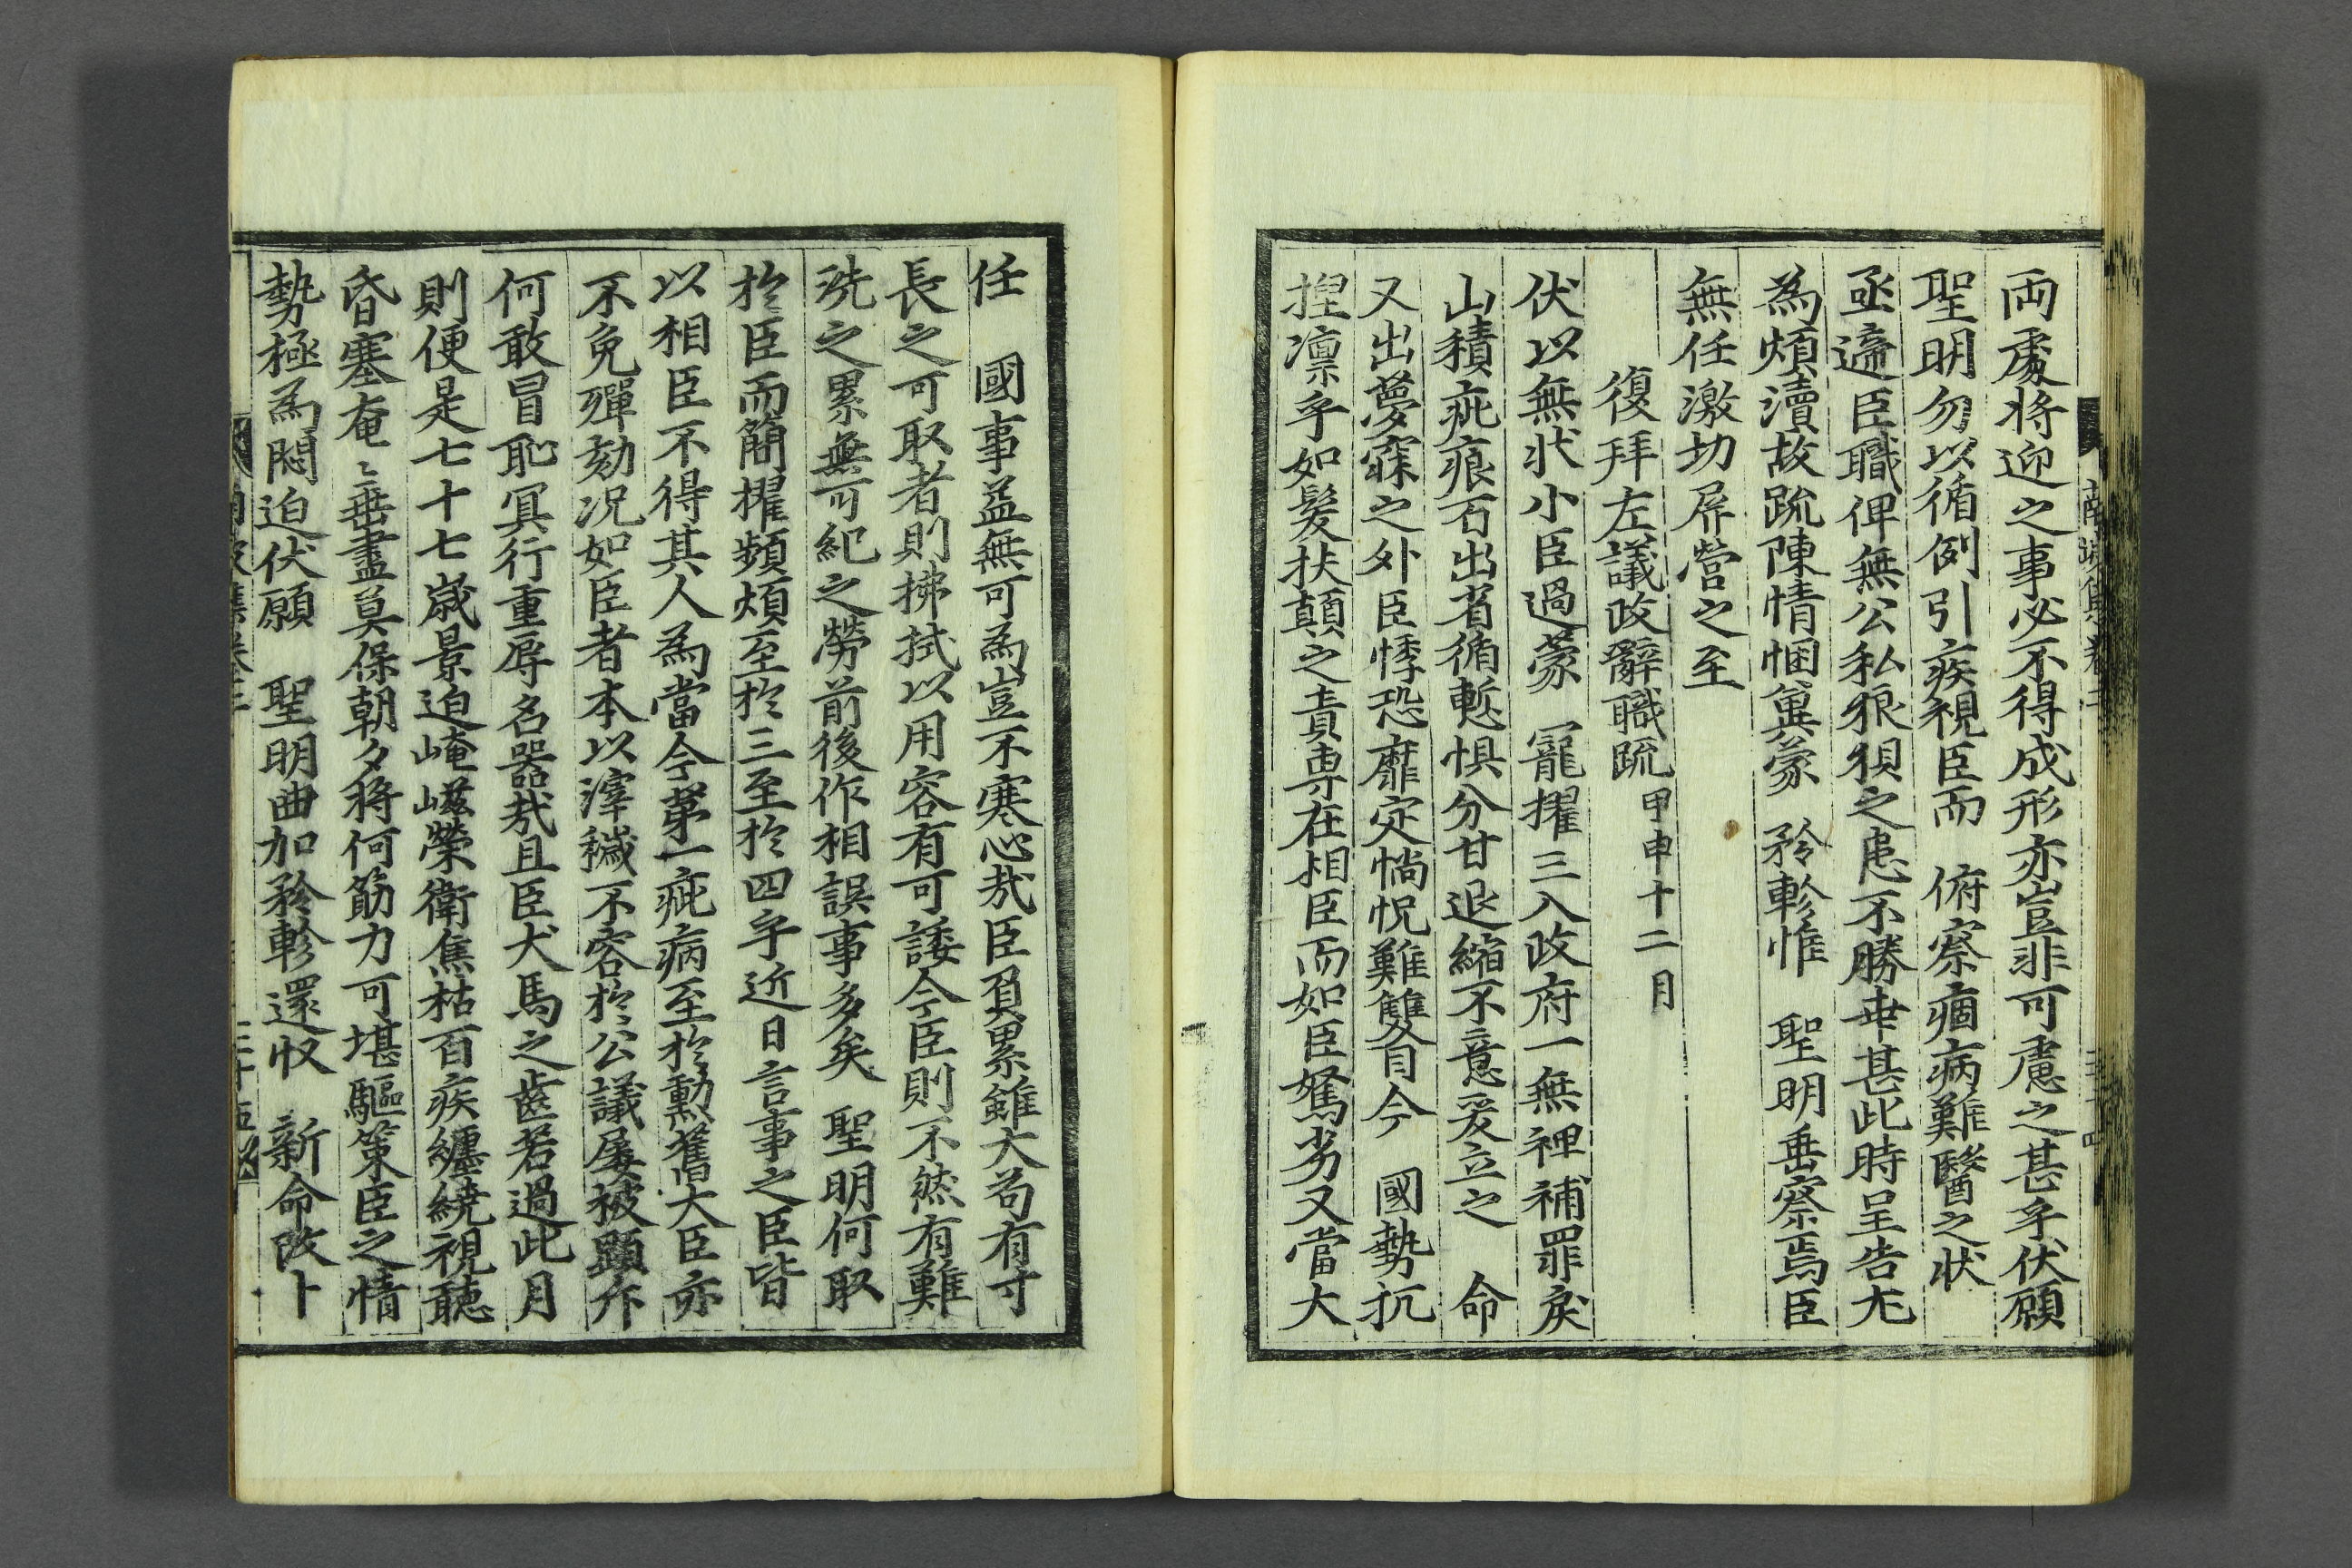 両處将迎之事必不得成形亦豈非可慮之甚乎伏願
聖明勿以循例引疾視臣而　俯察痼病難醫之状
亟遆臣職俾無公私狼狽之患不勝幸甚此時呈告尤
為煩瀆故跪陳情悃冀蒙　矜軫惟　聖明垂察焉臣
無任激切屛營之至
復拜左議政辭職疏甲申十二月
伏以無状小臣過蒙　寵擢三入政府一無裨補罪戾
山積疵痕石出省循慙惧分甘退縮不意爰立之　命
又出夢寐之外臣悸恐靡定惝怳難雙育今　國勢抏
捏凛乎如髪扶顛之責専在相臣而如臣駑劣又當大
任　國事益無可為豈不寒心㢤臣負累雖大苟有寸
長之可取者則拂拭以用容有可諉今臣則不然有難
洗之累無可紀之勞前後作相誤事多矣　聖明何取
於臣而簡擢頻煩至於三至於四乎近日言事之臣皆
以相臣不得其人為當今第一疵病至於勲舊大臣亦
不免彈劾况如臣者本以滓穢不容於公議屡被顕斥
何敢冒恥冥行重辱名器㢤且臣犬馬之齒若過此月
則便是七十七歳景迫崦嵫榮衛焦枯百疾纏繞視聽
昏塞奄〻垂盡莫保朝夕将何筋力可堪驅策臣之情
勢極為悶迫伏願　聖明曲加矜軫還収　新命改卜